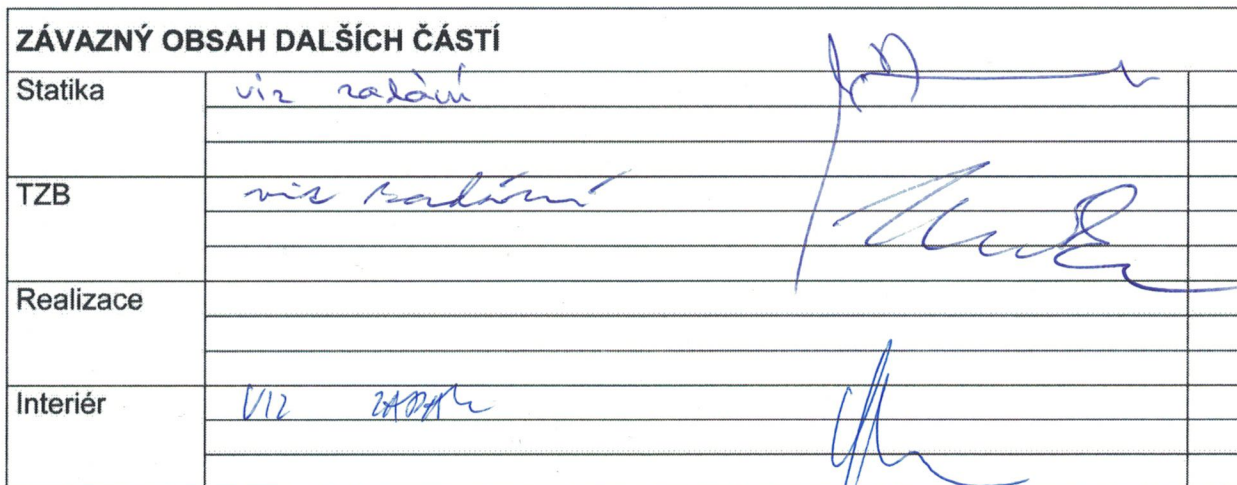 ZÁVAZNÝ OBSAH DALŠÍCH ČÁSTÍ
Statika viz zadání
TZB viz zadání
Realizace
Interiér VIZ ZADÁNÍ